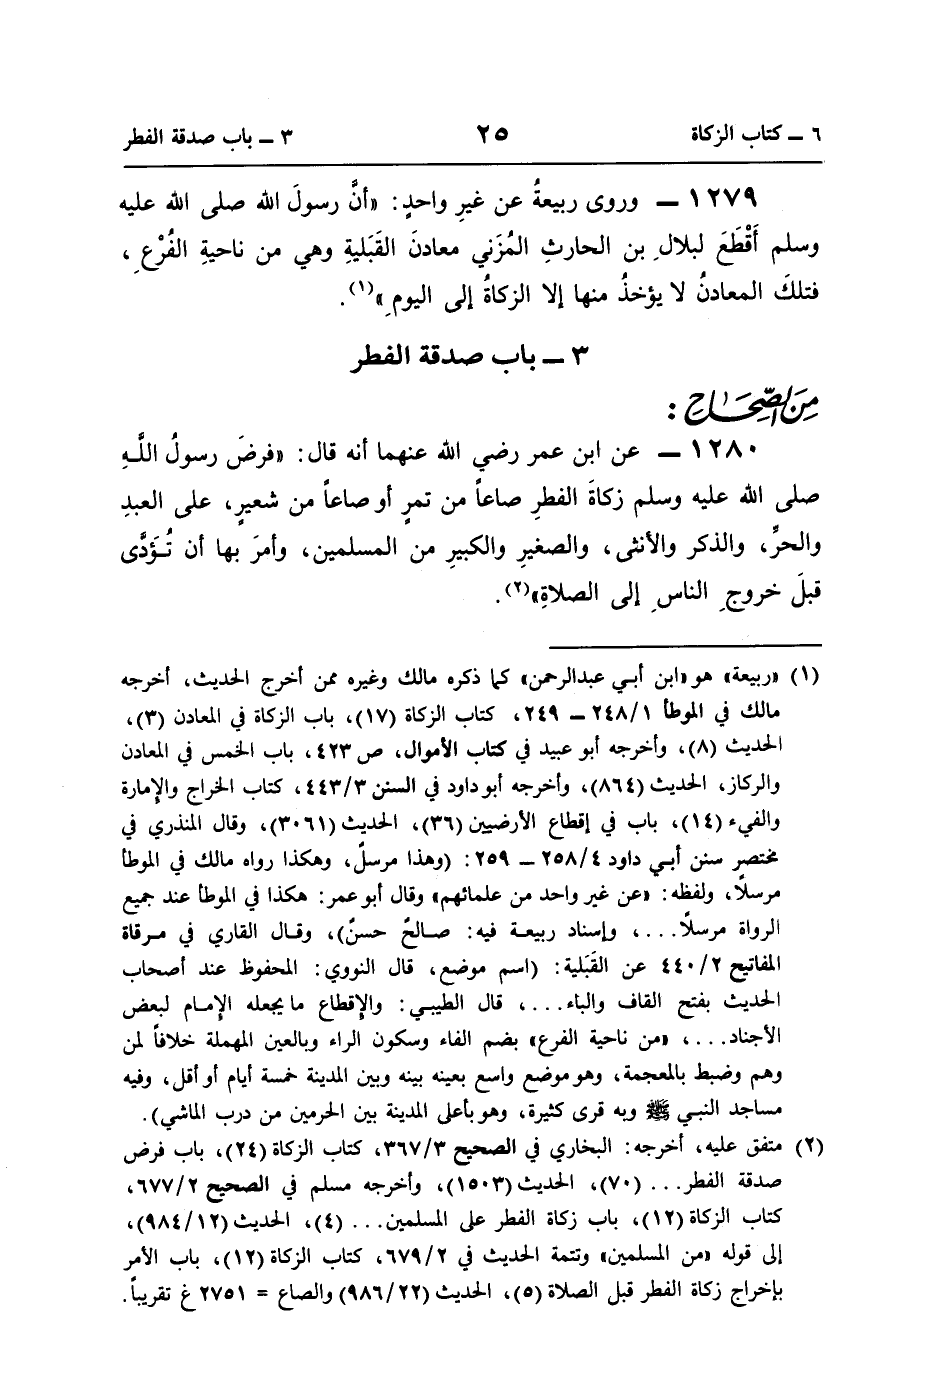 ٦ ــ كتاب الزكاة ٢٥ ٣ ــ باب صدقة الفطر
١٢٧٩ ــ وروى ربيعةُ عن غيرِ واحدٍ: «أنَّ رسولَ الله صلى الله عليه
وسلم أَقْطَعَ لبلالِ بن الحارثِ المُزَني معادنَ القَبَليةِ وهي من ناحيةِ الفُرْعِ،
فتلكَ المعادنُ لا يؤخذُ منها إلا الزكاةُ إلى اليومِ»(١).
٣ ــ باب صدقة الفطر
مِنَ الصِّحَاحِ :
١٢٨٠ ــ عن ابن عمر رضي الله عنهما أنه قال: «فرضَ رسولُ اللَّهِ
صلى الله عليه وسلم زكاةَ الفطرِ صاعاً من تمرٍ أو صاعاً من شعيرٍ، على العبدِ
والحرِّ، والذكر والأنثى، والصغيرِ والكبيرِ من المسلمين، وأمرَ بها أن تُؤَدَّى
قبلَ خروجِ الناسِ إلى الصلاةِ»(٢).
(١) «ربيعة» هو «ابن أبي عبدالرحمن» كما ذكره مالك وغيره ممن أخرج الحديث، أخرجه
مالك في الموطأ ٢٤٨/١ ــ ٢٤٩، كتاب الزكاة (١٧)، باب الزكاة في المعادن (٣)،
الحديث (٨)، وأخرجه أبو عبيد في كتاب الأموال، ص ٤٢٣، باب الخمس في المعادن
والركاز، الحديث (٨٦٤)، وأخرجه أبو داود في السنن ٤٤٣/٣، كتاب الخراج والإمارة
والفيء (١٤)، باب في إقطاع الأرضيين (٣٦)، الحديث (٣٠٦١)، وقال المنذري في
مختصر سنن أبي داود ٢٥٨/٤ ــ ٢٥٩: (وهذا مرسلٌ، وهكذا رواه مالك في الموطأ
مرسلاً، ولفظه: «عن غير واحد من علمائهم» وقال أبو عمر: هكذا في الموطأ عند جميع
الرواة مرسلاً...، وإسناد ربيعة فيه: صالحٌ حسنٌ)، وقال القاري في مرقاة
المفاتيح ٤٤٠/٢ عن القَبَلية: (اسم موضع، قال النووي: المحفوظ عند أصحاب
الحديث بفتح القاف والباء...، قال الطيبي: والإقطاع ما يجعله الإمام لبعض
الأجناد...، «من ناحية الفرع» بضم الفاء وسكون الراء وبالعين المهملة خلافاً لمن
وهم وضبط بالمعجمة، وهو موضع واسع بعينه بينه وبين المدينة خمسة أيام أو أقل، وفيه
مساجد النبي ﷺ وبه قرى كثيرة، وهو بأعلى المدينة بين الحرمين من درب الماشي).
(٢) متفق عليه، أخرجه: البخاري في الصحيح ٣٦٧/٣، كتاب الزكاة (٢٤)، باب فرض
صدقة الفطر... (٧٠)، الحديث (١٥٠٣)، وأخرجه مسلم في الصحيح ٦٧٧/٢،
كتاب الزكاة (١٢)، باب زكاة الفطر على المسلمين... (٤)، الحديث (٩٨٤/١٢)،
إلى قوله «من المسلمين» وتتمة الحديث في ٦٧٩/٢، كتاب الزكاة (١٢)، باب الأمر
بإخراج زكاة الفطر قبل الصلاة (٥)، الحديث (٩٨٦/٢٢) والصاع = ٢٧٥١ غ تقريباً.